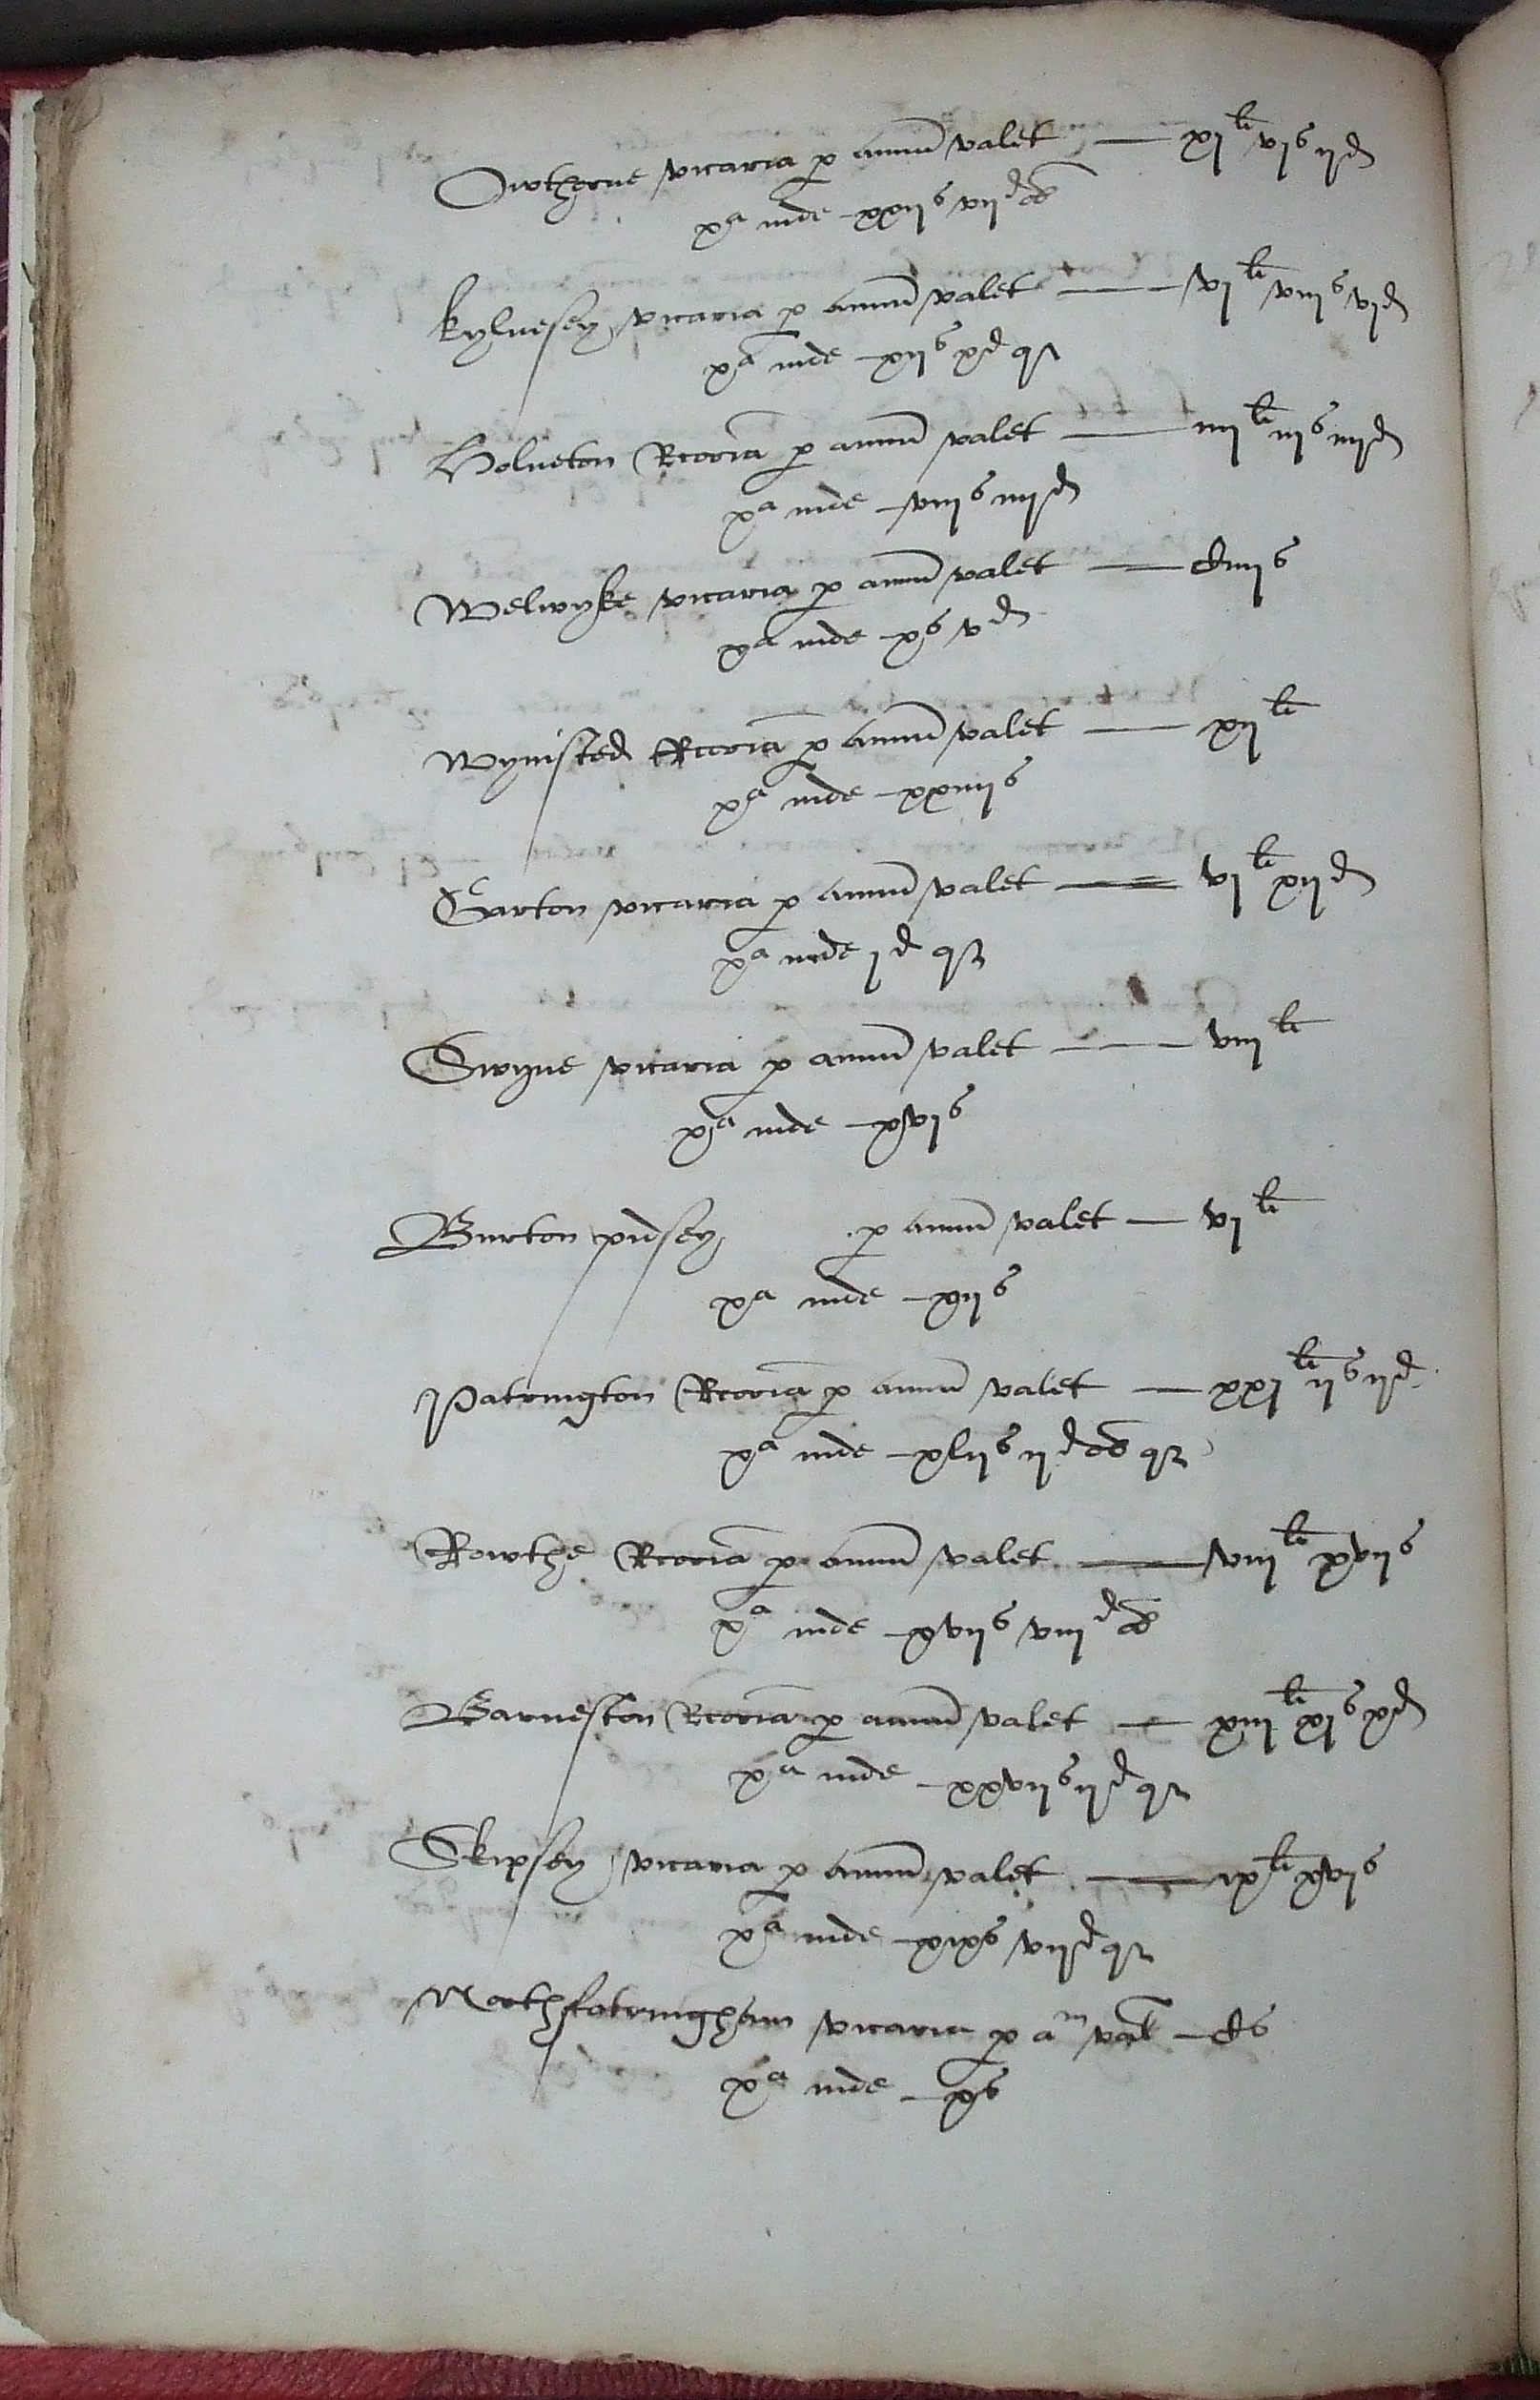 Owthorne vicaria p annu valet — xj li vj s ij d
xa inde xxij s vij d ob
kylnesey vicaria p annu valet — vj li viij s vj d
xa inde xij s x d qr
Holneton Rcoria p annu valet — iiij li iij s iiij d
xa inde viij s iiij d
Welwyke vicaria p annu valet — ciiij s
xa inde x s v d
Wynisted Rcoria p annu valet — xij li
xa inde xxiiij s
Garton vicaria p annu valet — vj li xij d
xa inde j d qr
Swyne vicaria p annu valet — viij li
xa inde xvj s
Burton pidsey p annu valet — vj li
xa inde xij s
Patrington Rcoria p annu valet — xxj li ij s ij d
xa inde xlij s ij d ob qr
Rowthe Rcoria p annu valet — viij li xvij s
xa inde xvij s viij d ob
Barneston Rcoria p annu valet — xiij li xj s x d
xa inde xxvij s ij d qr
Skipsey vicaria p annu valet — ix li xvj s
xa inde xix s vij d qr
Northfrotringham vicaria p an val — c s
xa inde x s